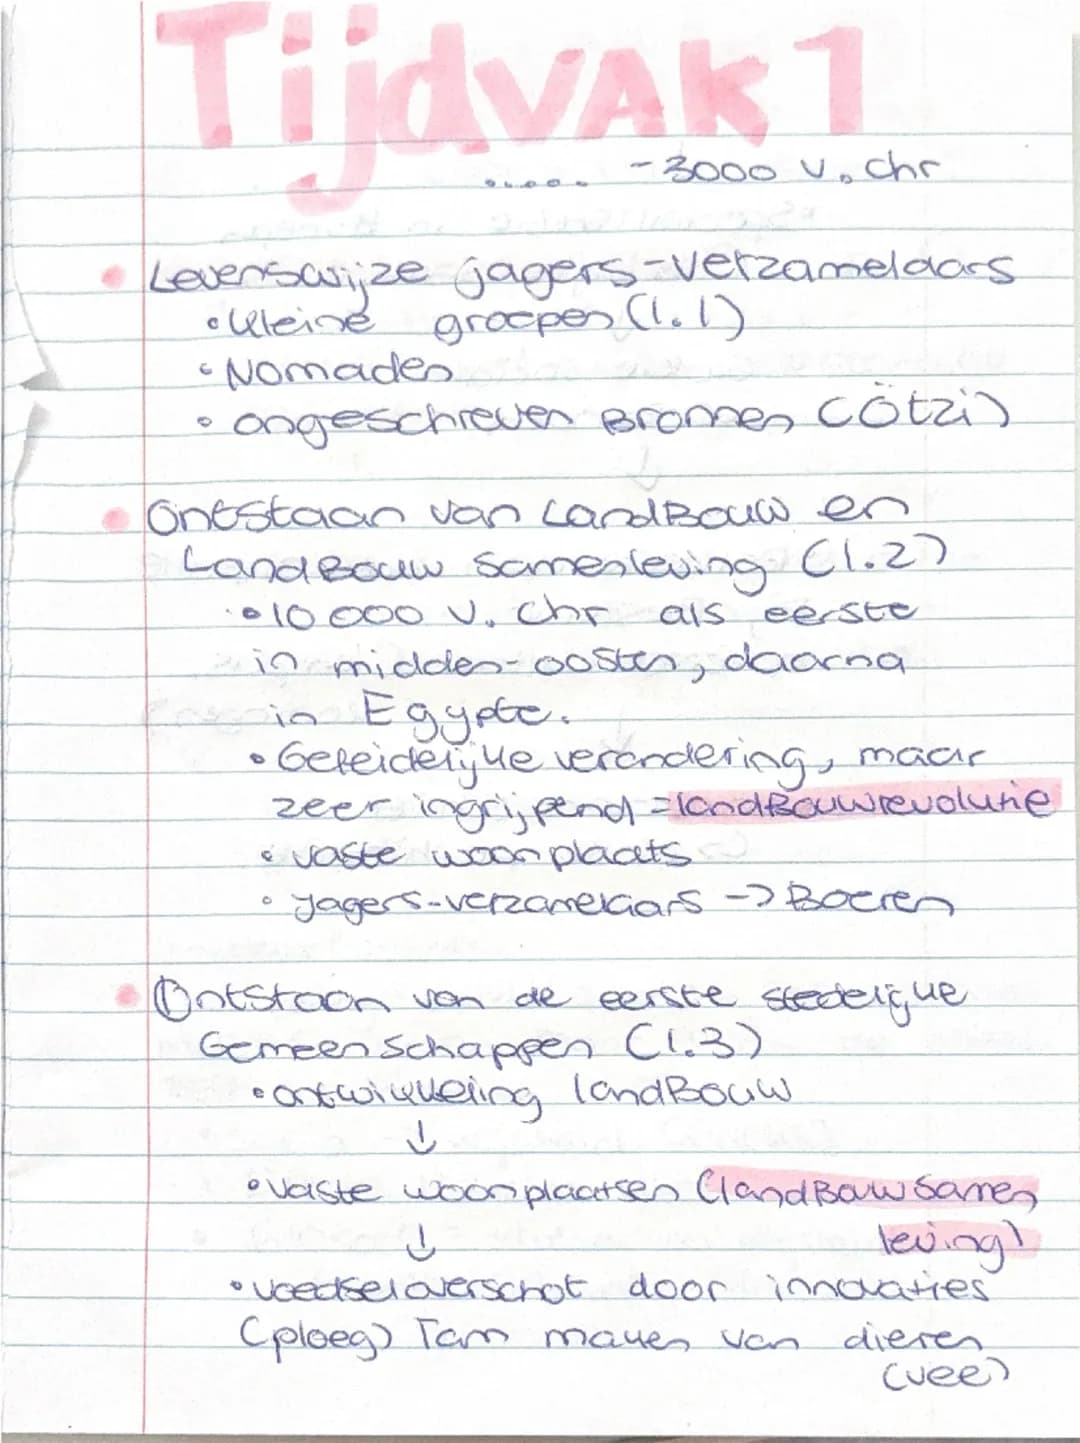 Tijdvak 1
..... -3000 v. chr
Levenswijze jagers-verzamelaars
• kleine groepen (1.1)
• Nomaden
• ongeschreven Bronnen (Ötzi)
Ontstaan van LandBouw en
LandBouw Samenleving (1.2)
• 10 000 v. Chr als eerste
in midden-oosten, daarna
in Egypte.
• Geleidelijke verandering, maar
zeer ingrijpend = landBouwrevolutie
• vaste woonplaats
• jagers-verzamelaars -> Boeren
Ontstaan van de eerste stedelijke
Gemeenschappen (1.3)
• ontwikkeling landBouw
↓
• vaste woonplaatsen (landBouwSamen
leving)
↓
• voedseloverschot door innovaties
(ploeg) Tam maken van dieren
(vee)